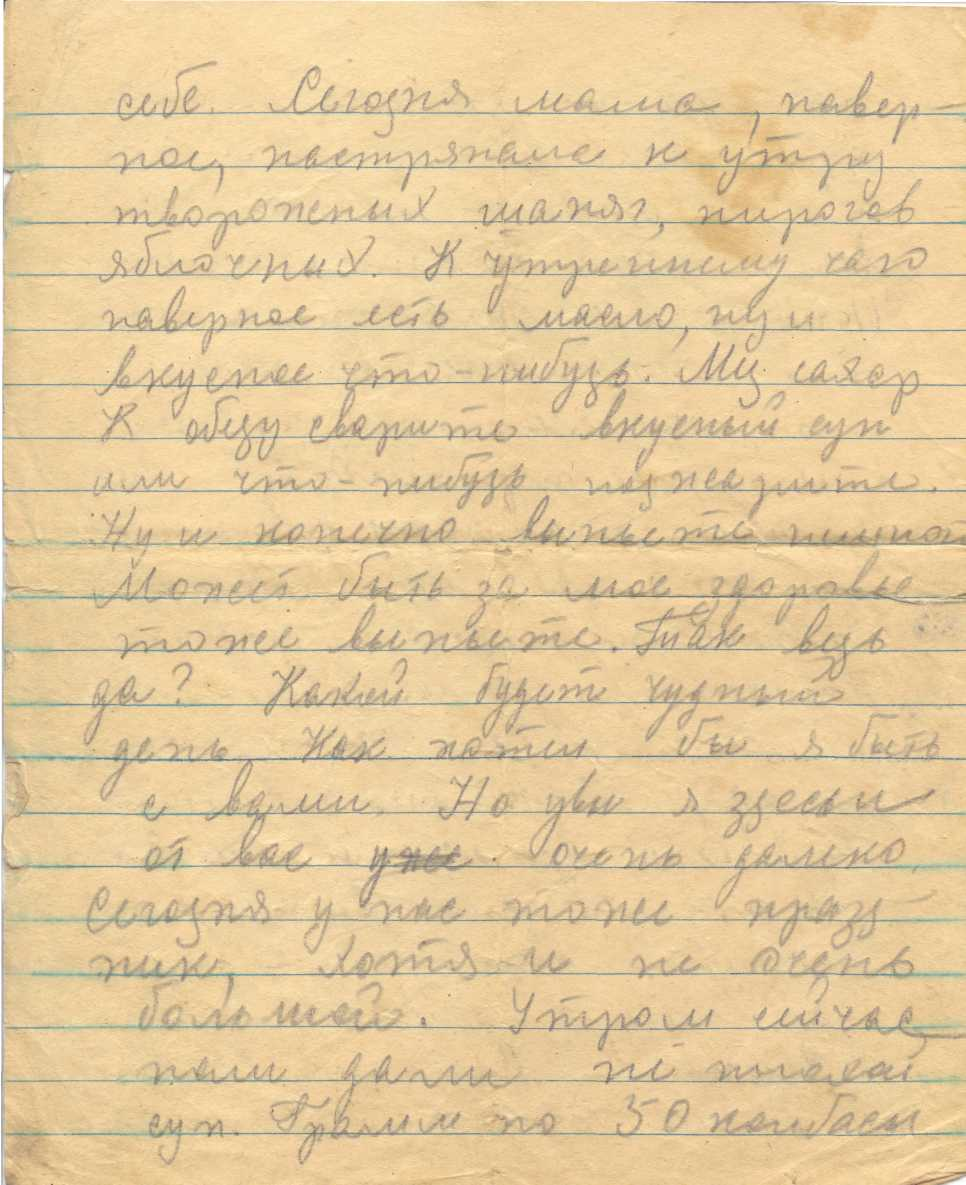 себе. Сегодня мама, навер-
ное, настряпала к утру
творожных шанег, пирогов
яблочных. К утреннему чаю
наверное есть масло, ну и
вкусное что-нибудь. сахар
К обеду сварите вкусный суп
или что-нибудь поджарите.
Ну и конечно выпьете
Может быть за мое здоровье
тоже выпьете. Так ведь
да? Какой будет чудный
день. Как хотел бы я быть
с вами. Но увы я здесь и
от вас уже очень далеко.
Сегодня у нас тоже празд-
ник, хотя и не очень
большой. Утром сейчас
нам дали не плохой
суп. Грамм по 50 колбасы